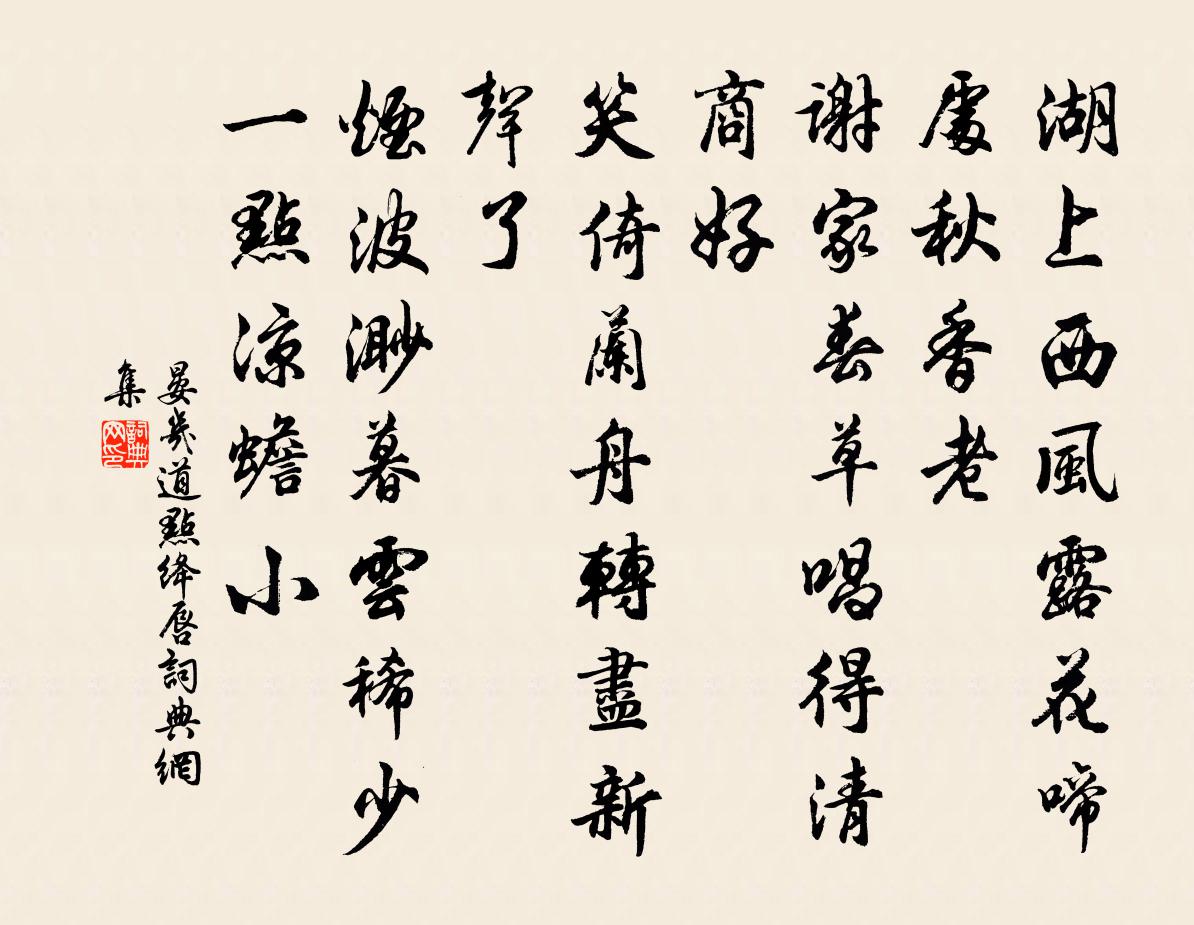 湖上西風露花啼
處秋香老
謝家春草唱得清
商好
笑倚蘭舟轉盡新
聲了
煙波渺暮雲稀少
一點涼蟾小
晏幾道點絳唇詞典網
集
詞典
网印